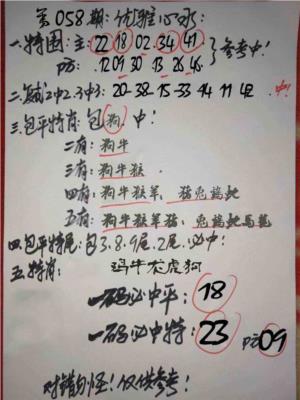 第058期:优雅心水:
一.特围:主:22 18 02.34 41 } 参考中!
防:12 09 30 13 26 46
二.复式2中2.3中3: 20-38-15-33-14 11 42. 中!
三.包平特肖:包狗.中!
二肖:狗牛
三肖:狗牛猴.
四肖:狗牛猴羊.猪兔龙蛇
五肖:狗牛猴羊猪:兔龙蛇马鼠
四.包平特尾:包3.8.9尾.2尾.必中:
五.特肖: 鸡牛龙虎狗
一码必中平:18
一码必中特:23 防09
对错勿怪!仅供参考!